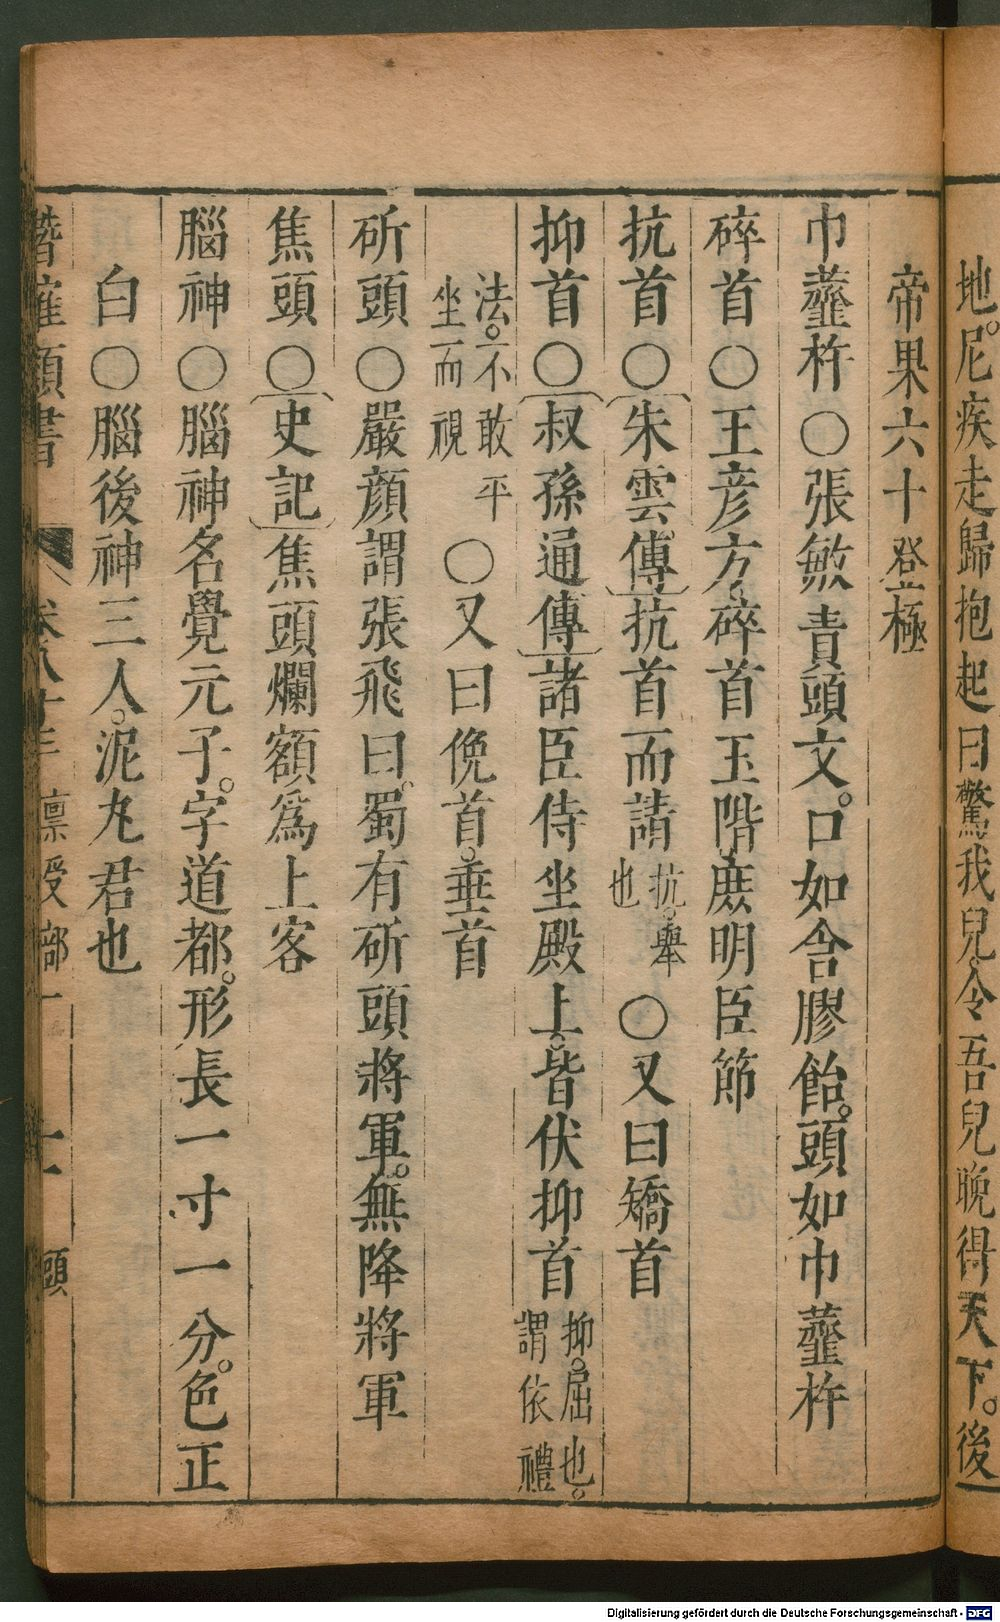 地。尼疾走歸抱起曰驚我兒。令吾兒晚得天下。後
帝果六十登極
巾虀杵〇張敏責頭文。口如含膠飴。頭如巾虀杵
碎首〇王彥方碎首玉階。庶明臣節
抗首〇朱雲傳抗首而請抗。舉也〇又曰矯首
抑首〇叔孫通傳諸臣侍坐殿上。皆伏抑首抑。屈也。謂依禮
法。不敢平坐而視〇又曰俛首。垂首
斫頭〇嚴顏謂張飛曰。蜀有斫頭將軍。無降將軍
焦頭〇史記焦頭爛額爲上客
腦神〇腦神名覺元子。字道都。形長一寸一分。色正
白〇腦後神三人。泥丸君也
潛確類書 卷八十三 稟受部一 頭
Digitalisierung gefördert durch die Deutsche Forschungsgemeinschaft - DFG